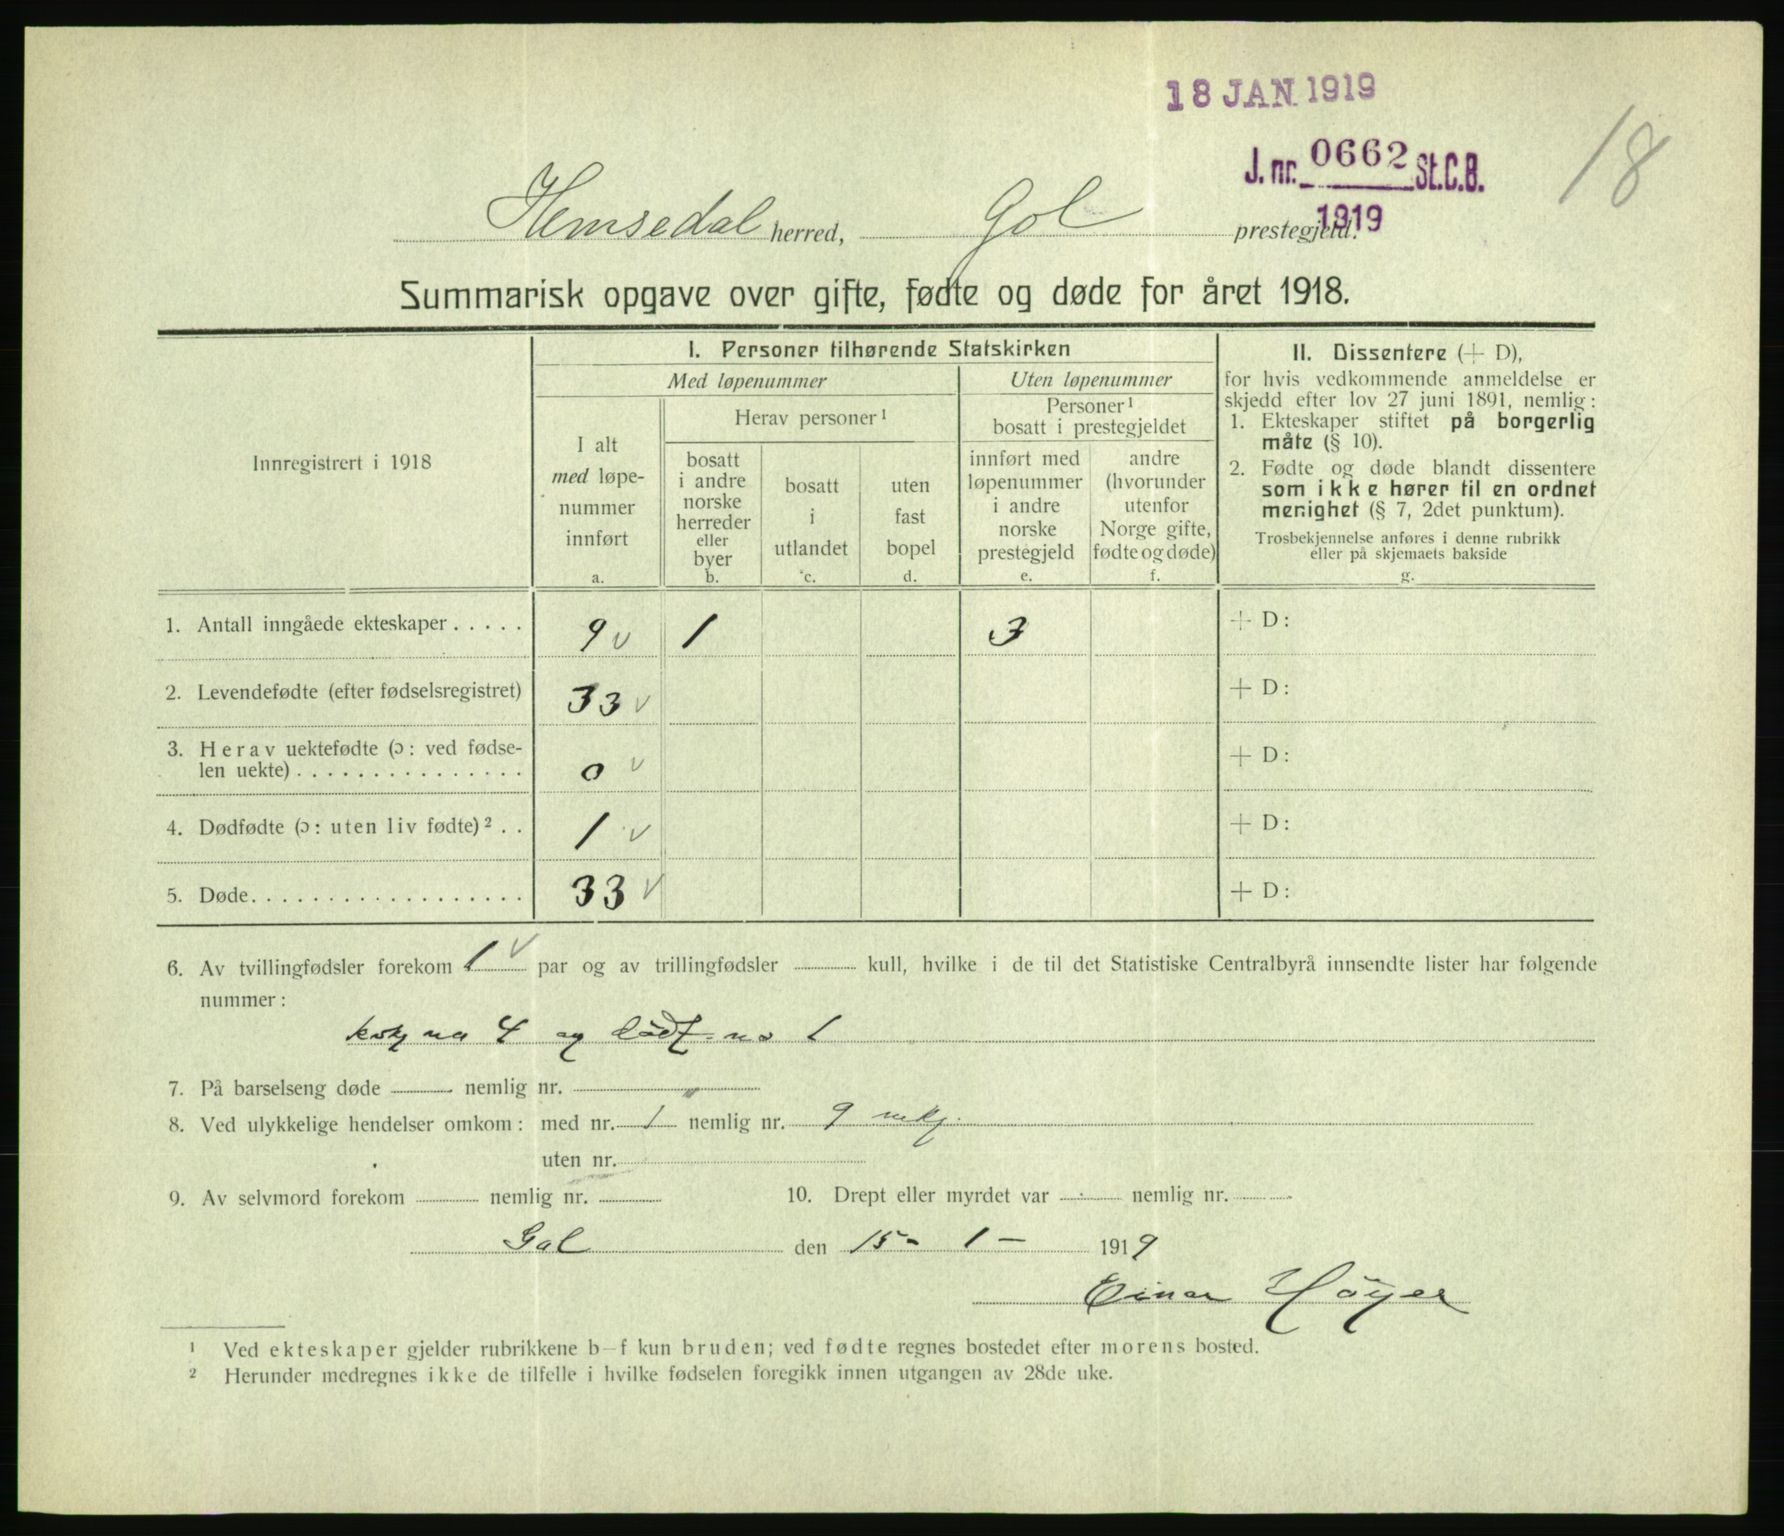 18 JAN 1919
J. nr. 0662 St.C.B.
1919
18
Hemsedal herred, Gol prestegjeld.
Summarisk opgave over gifte, fødte og døde for året 1918.
Innregistrert i 1918
I. Personer tilhørende Statskirken
Med løpenummer
Uten løpenummer
I alt
med løpe-
nummer
innført
a.
Herav personer ¹
bosatt
i andre
norske
herreder
eller
byer
b.
bosatt
i
utlandet
c.
uten
fast
bopel
d.
Personer ¹
bosatt i prestegjeldet
innført med
løpenummer
i andre
norske
prestegjeld
e.
andre
(hvorunder
utenfor
Norge gifte,
fødte og døde)
f.
II. Dissentere (+ D),
for hvis vedkommende anmeldelse er
skjedd efter lov 27 juni 1891, nemlig:
1. Ekteskaper stiftet på borgerlig
måte (§ 10).
2. Fødte og døde blandt dissentere
som ikke hører til en ordnet
menighet (§ 7, 2det punktum).
Trosbekjennelse anføres i denne rubrikk
eller på skjemaets bakside
g.
1. Antall inngåede ekteskaper . . . . . 9 v 1 3 + D:
2. Levendefødte (efter fødselsregistret) 33 v + D:
3. Herav uektefødte (ɔ: ved fødse-
len uekte) . . . . . . . . . . . . . . . 0 v + D:
4. Dødfødte (ɔ: uten liv fødte) ² . . 1 v + D:
5. Døde. . . . . . . . . . . . . . . . . . 33 v + D:
6. Av tvillingfødsler forekom 1 v par og av trillingfødsler kull, hvilke i de til det Statistiske Centralbyrå innsendte lister har følgende
nummer:
4 og dødf. no 1
7. På barselseng døde nemlig nr. "
8. Ved ulykkelige hendelser omkom: med nr. 1 nemlig nr. 9 mkj.
uten nr.
9. Av selvmord forekom nemlig nr. 10. Drept eller myrdet var - nemlig nr.
Gol den 15 - 1 - 1919
Einar Høyer
¹ Ved ekteskaper gjelder rubrikkene b-f kun bruden; ved fødte regnes bostedet efter morens bosted.
² Herunder medregnes ikke de tilfelle i hvilke fødselen foregikk innen utgangen av 28de uke.